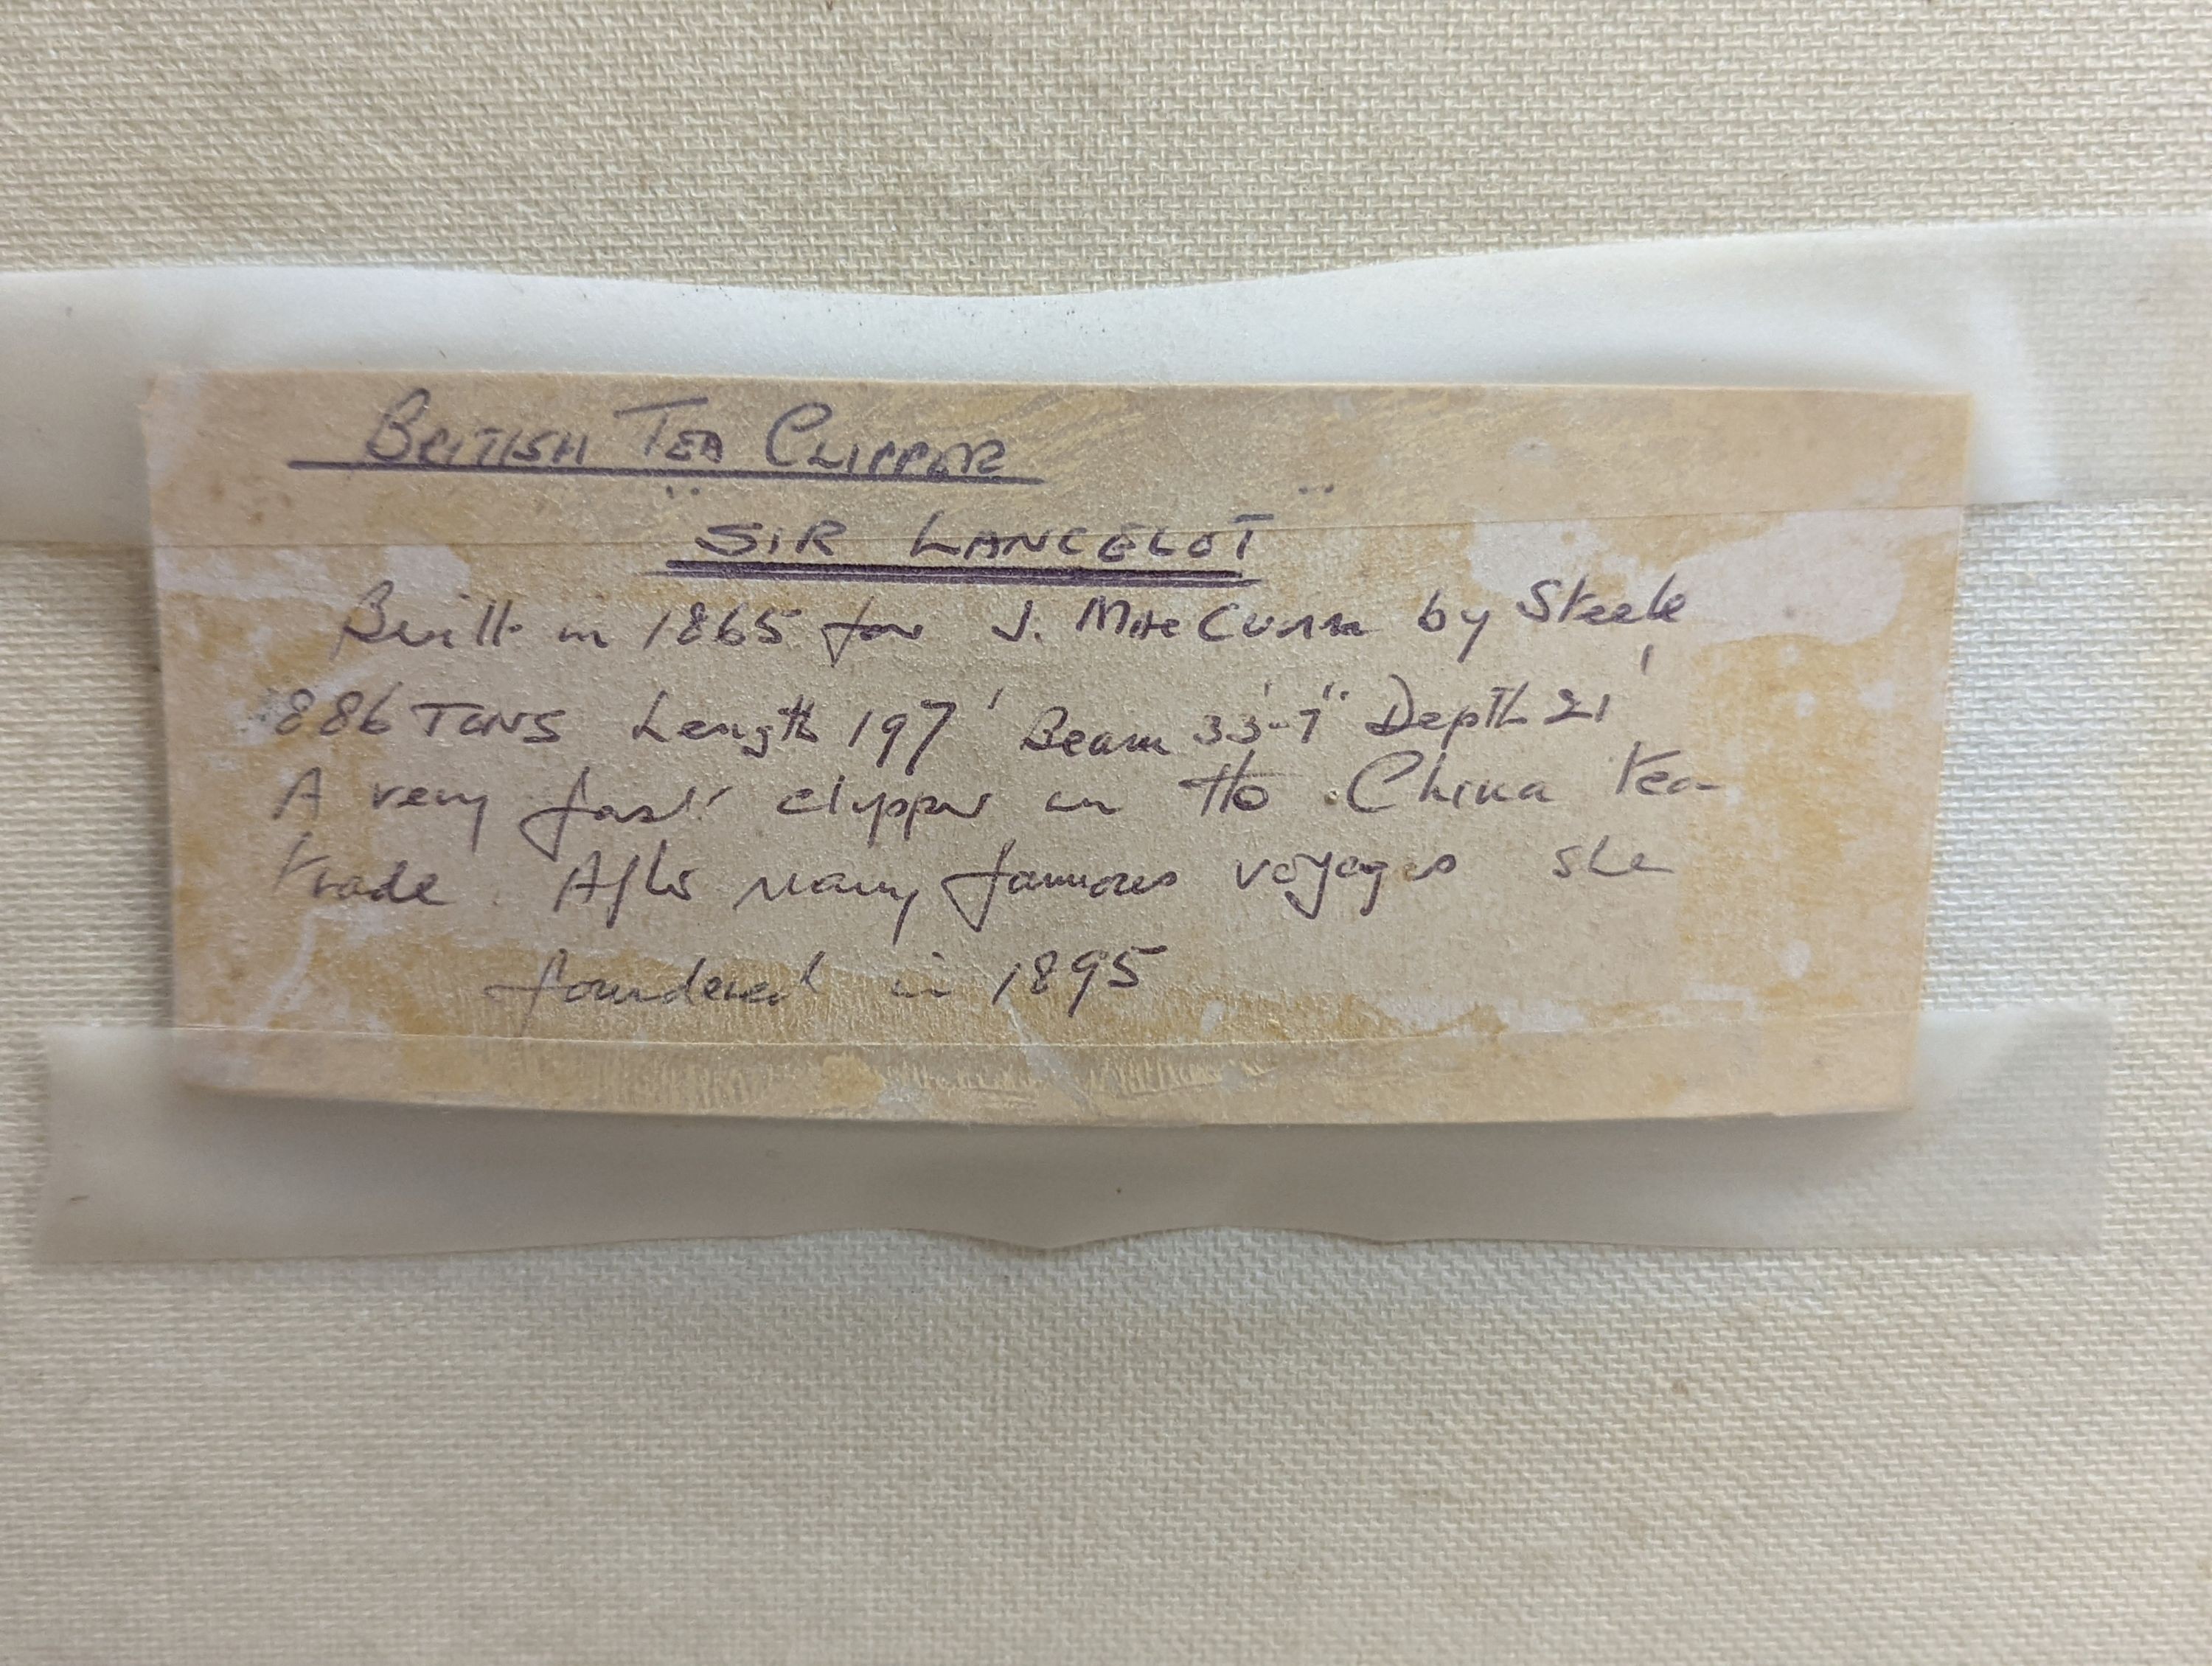 BRITISH TEA CLIPPER
"SIR LANCELOT"
Built in 1865 for J. by Steele
886 TONS Length 197' Beam 33'-7" Depth 21'
A very fast clipper in the China tea
trade. After many famous voyages she
foundered in 1895